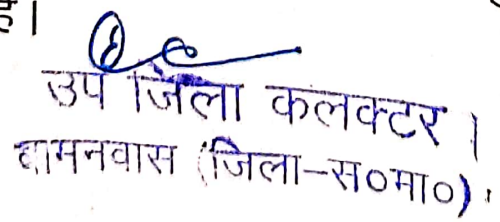 है।
उप जिला कलक्टर।
बामनवास (जिला-स०मा०)